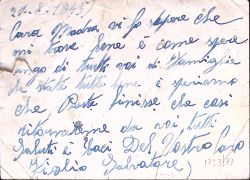 21-8-1945
Cara Madra vi fo sapere che
mi trove bene è come spere
di tutti voi di Famiglia
che state tutti bene è speriamo
che Posto finisse che casi
ritornareme da voi tutti
Saluti è Baci Del Vostro Caro
Figlio Salvatore